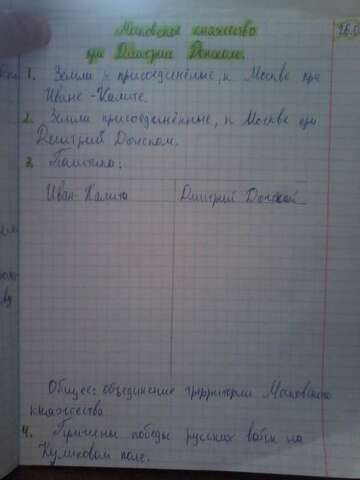 Московское княжество
при Дмитрии Донском.
26.0
1. Земли присоединённые, к Москве при
Иване-Калите.
2. Земли присоединённые, к Москве при
Дмитрий Донском.
3. Политика:
Иван-Калита
Дмитрий Донской
Общее: объединение территории Московского
княжества
4. Причены победы русских войск на
Куликовом поле.